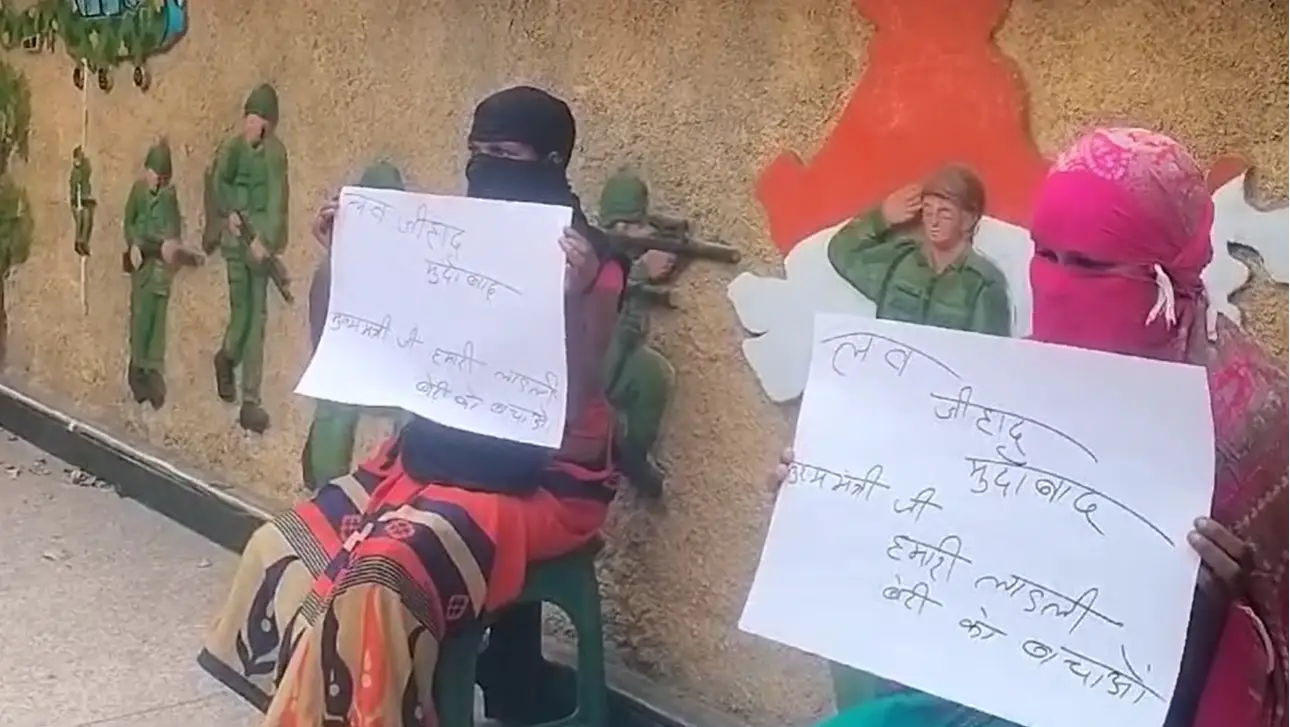 लव जीहाद
मुर्दाबाद
मुख्यमंत्री जी हमारी लाडली
बेटी को बचाओ
लव
जीहाद
मुर्दाबाद
मुख्यमंत्री जी
हमारी लाडली
बेटी को बचाओं